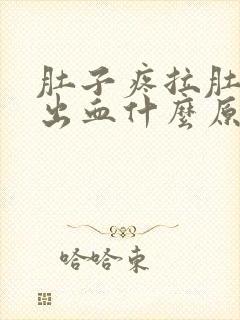 肚子疼拉肚
出血什麼原
哈哈東